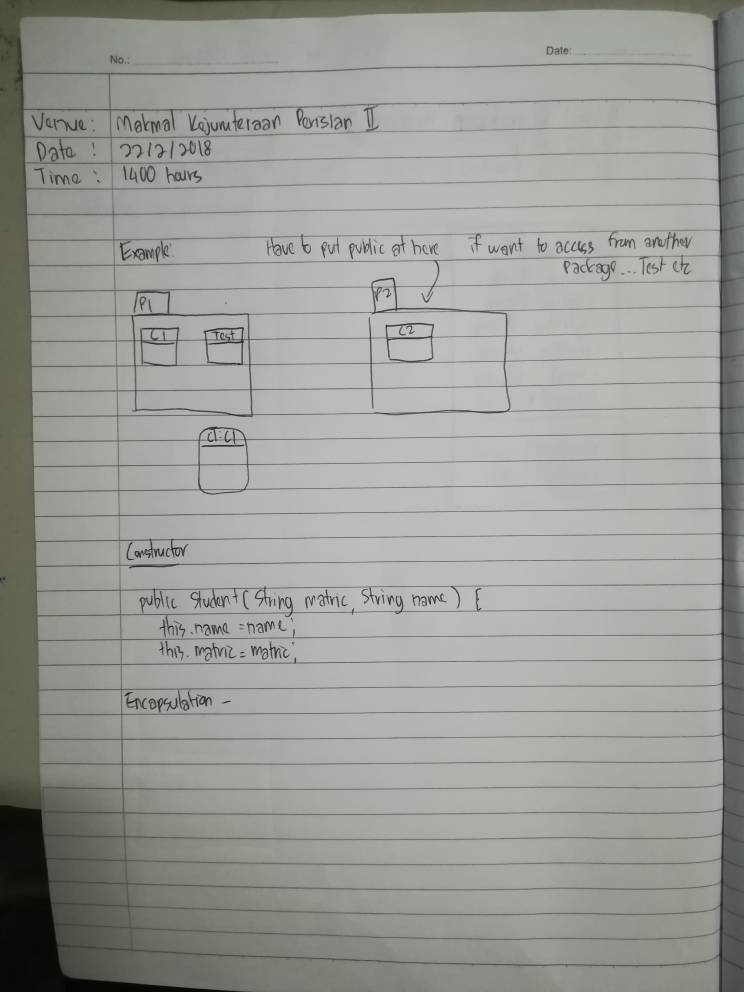 No.:
Date:
Venue: Makmal Kejuruteraan Perisian II
Date : 22/2/2018
Time : 1400 hours
Example:
Have to put public at here if want to access from another
package... Test etc
P1
P2
C1
Test
C2
C1:C1
Constructor
public Student(String matric, String name) {
this.name = name;
this.matric = matric;
Encapsulation -